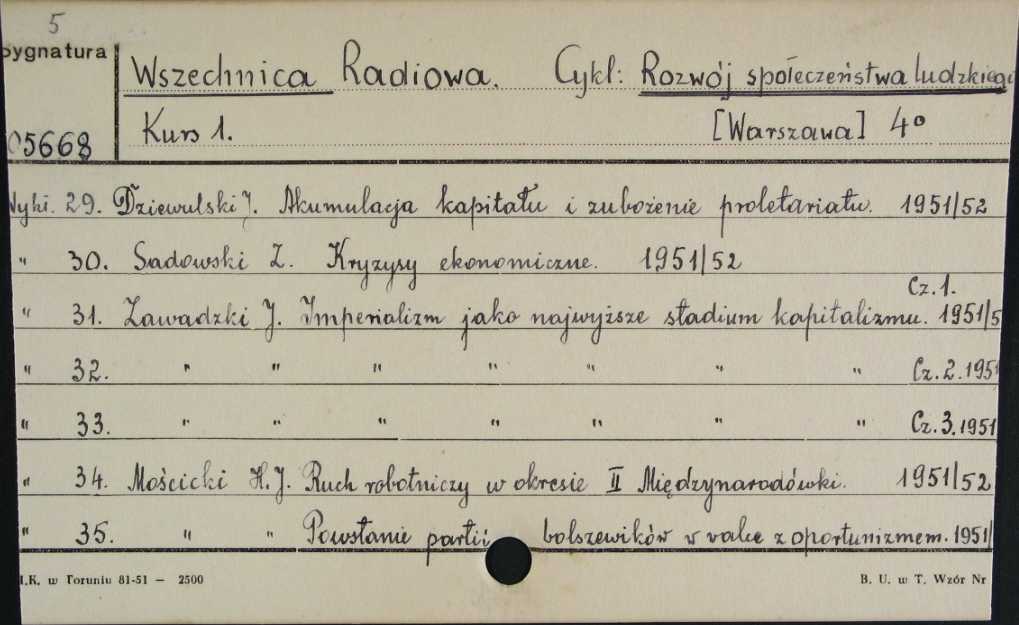 5
Sygnatura
Wszechnica Radiowa. Cykl: Rozwój społeczeństwa ludzkiego
05668
Kurs 1. [Warszawa] 4°
Wykł. 29. Dziewulski J. Akumulacja kapitału i zubożenie proletariatu. 1951/52
" 30. Sadowski Z. Kryzysy ekonomiczne. 1951/52
Cz. 1.
" 31. Zawadzki J. Imperializm jako najwyższe stadium kapitalizmu. 1951/5
" 32. " " " " " " " Cz. 2. 1951
" 33. " " " " " " " Cz. 3. 1951
" 34. Mościcki H.J. Ruch robotniczy w okresie II Międzynarodówki. 1951/52
" 35. " " Powstanie partii bolszewików w walce z oportunizmem. 1951/
I.K. w Toruniu 81-51 — 2500 B. U. w T. Wzór Nr